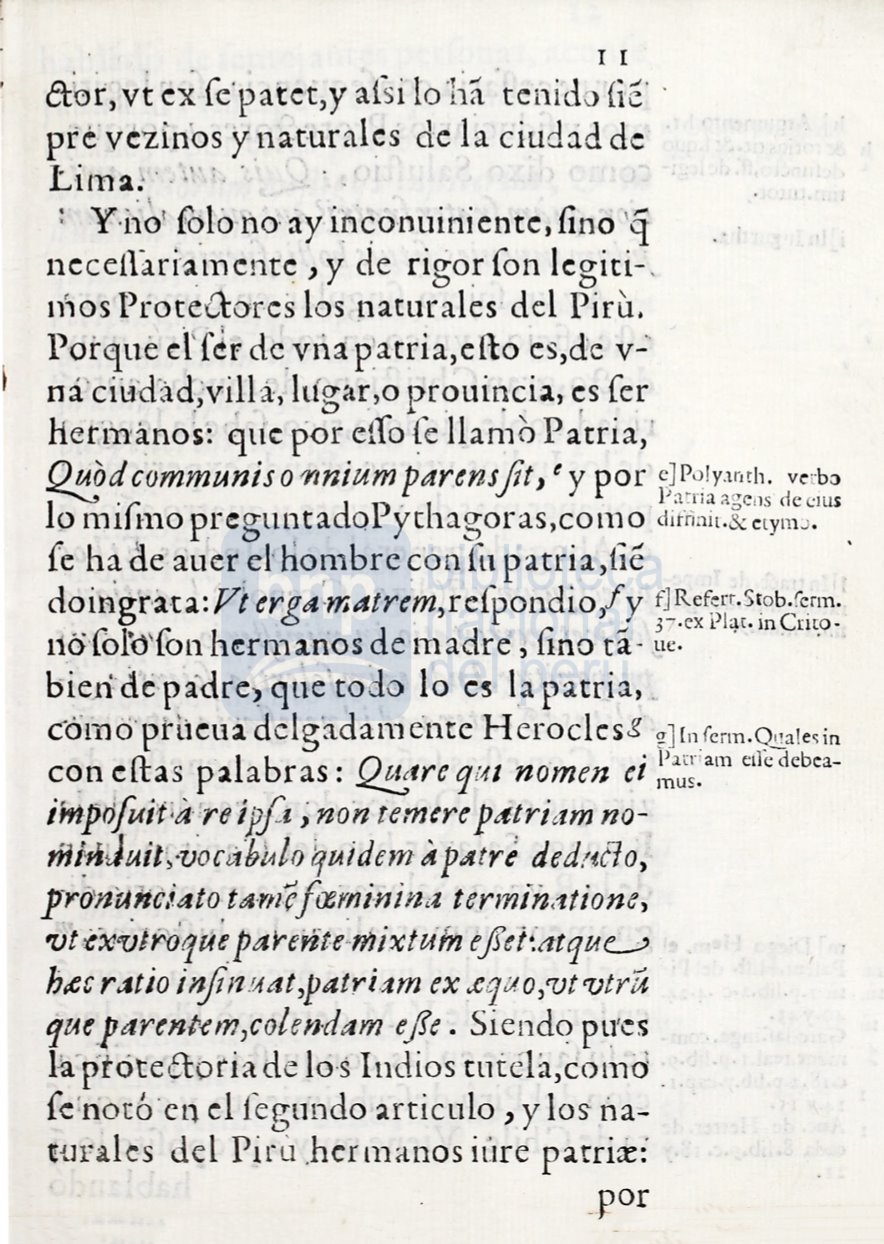 11
ctor, vt ex ſe patet, y aſsi lo hã tenido ſiẽ
pre vezinos y naturales de la ciudad de
Lima.
Y no ſolo no ay inconuiniente, ſino q̃
neceſſariamente, y de rigor ſon legiti-
mos Protectores los naturales del Pirù.
Porque el ſer de vna patria, eſto es, de v-
na ciudad, villa, lugar, o prouincia, es ſer
hermanos: que por eſſo ſe llamò Patria,
Quòd communis omnium parens ſit, e y por
lo miſmo preguntado Pythagoras, como
ſe ha de auer el hombre con ſu patria, ſiẽ
do ingrata: Vt erga matrem, reſpondio, f y
no ſolo ſon hermanos de madre, ſino tã-
bien de padre, que todo lo es la patria,
como prueua delgadamente Herocles g
con eſtas palabras: Quare qui nomen ei
impoſuit à re ipſa, non temere patriam no-
minauit, vocabulo quidem à patre deducto,
pronunciato tamẽ fœminina terminatione,
vt ex vtroque parente mixtum eſſet: atque
hæc ratio inſinuat, patriam ex æquo, vt vtrũ
que parentem, colendam eſſe. Siendo pues
la protectoria de los Indios tutela, como
ſe notó en el ſegundo articulo, y los na-
turales del Pirù hermanos iúre patriæ:
por
e] Polyanth. verbo
Patria agens de eius
diffinit. & etymo.
f] Refert. Stob. ſerm.
37. ex Plat. in Crito-
ne.
g] In ſerm. Quales in
Patriam eſſe debea-
mus.
bnp biblioteca
nacional
del perú